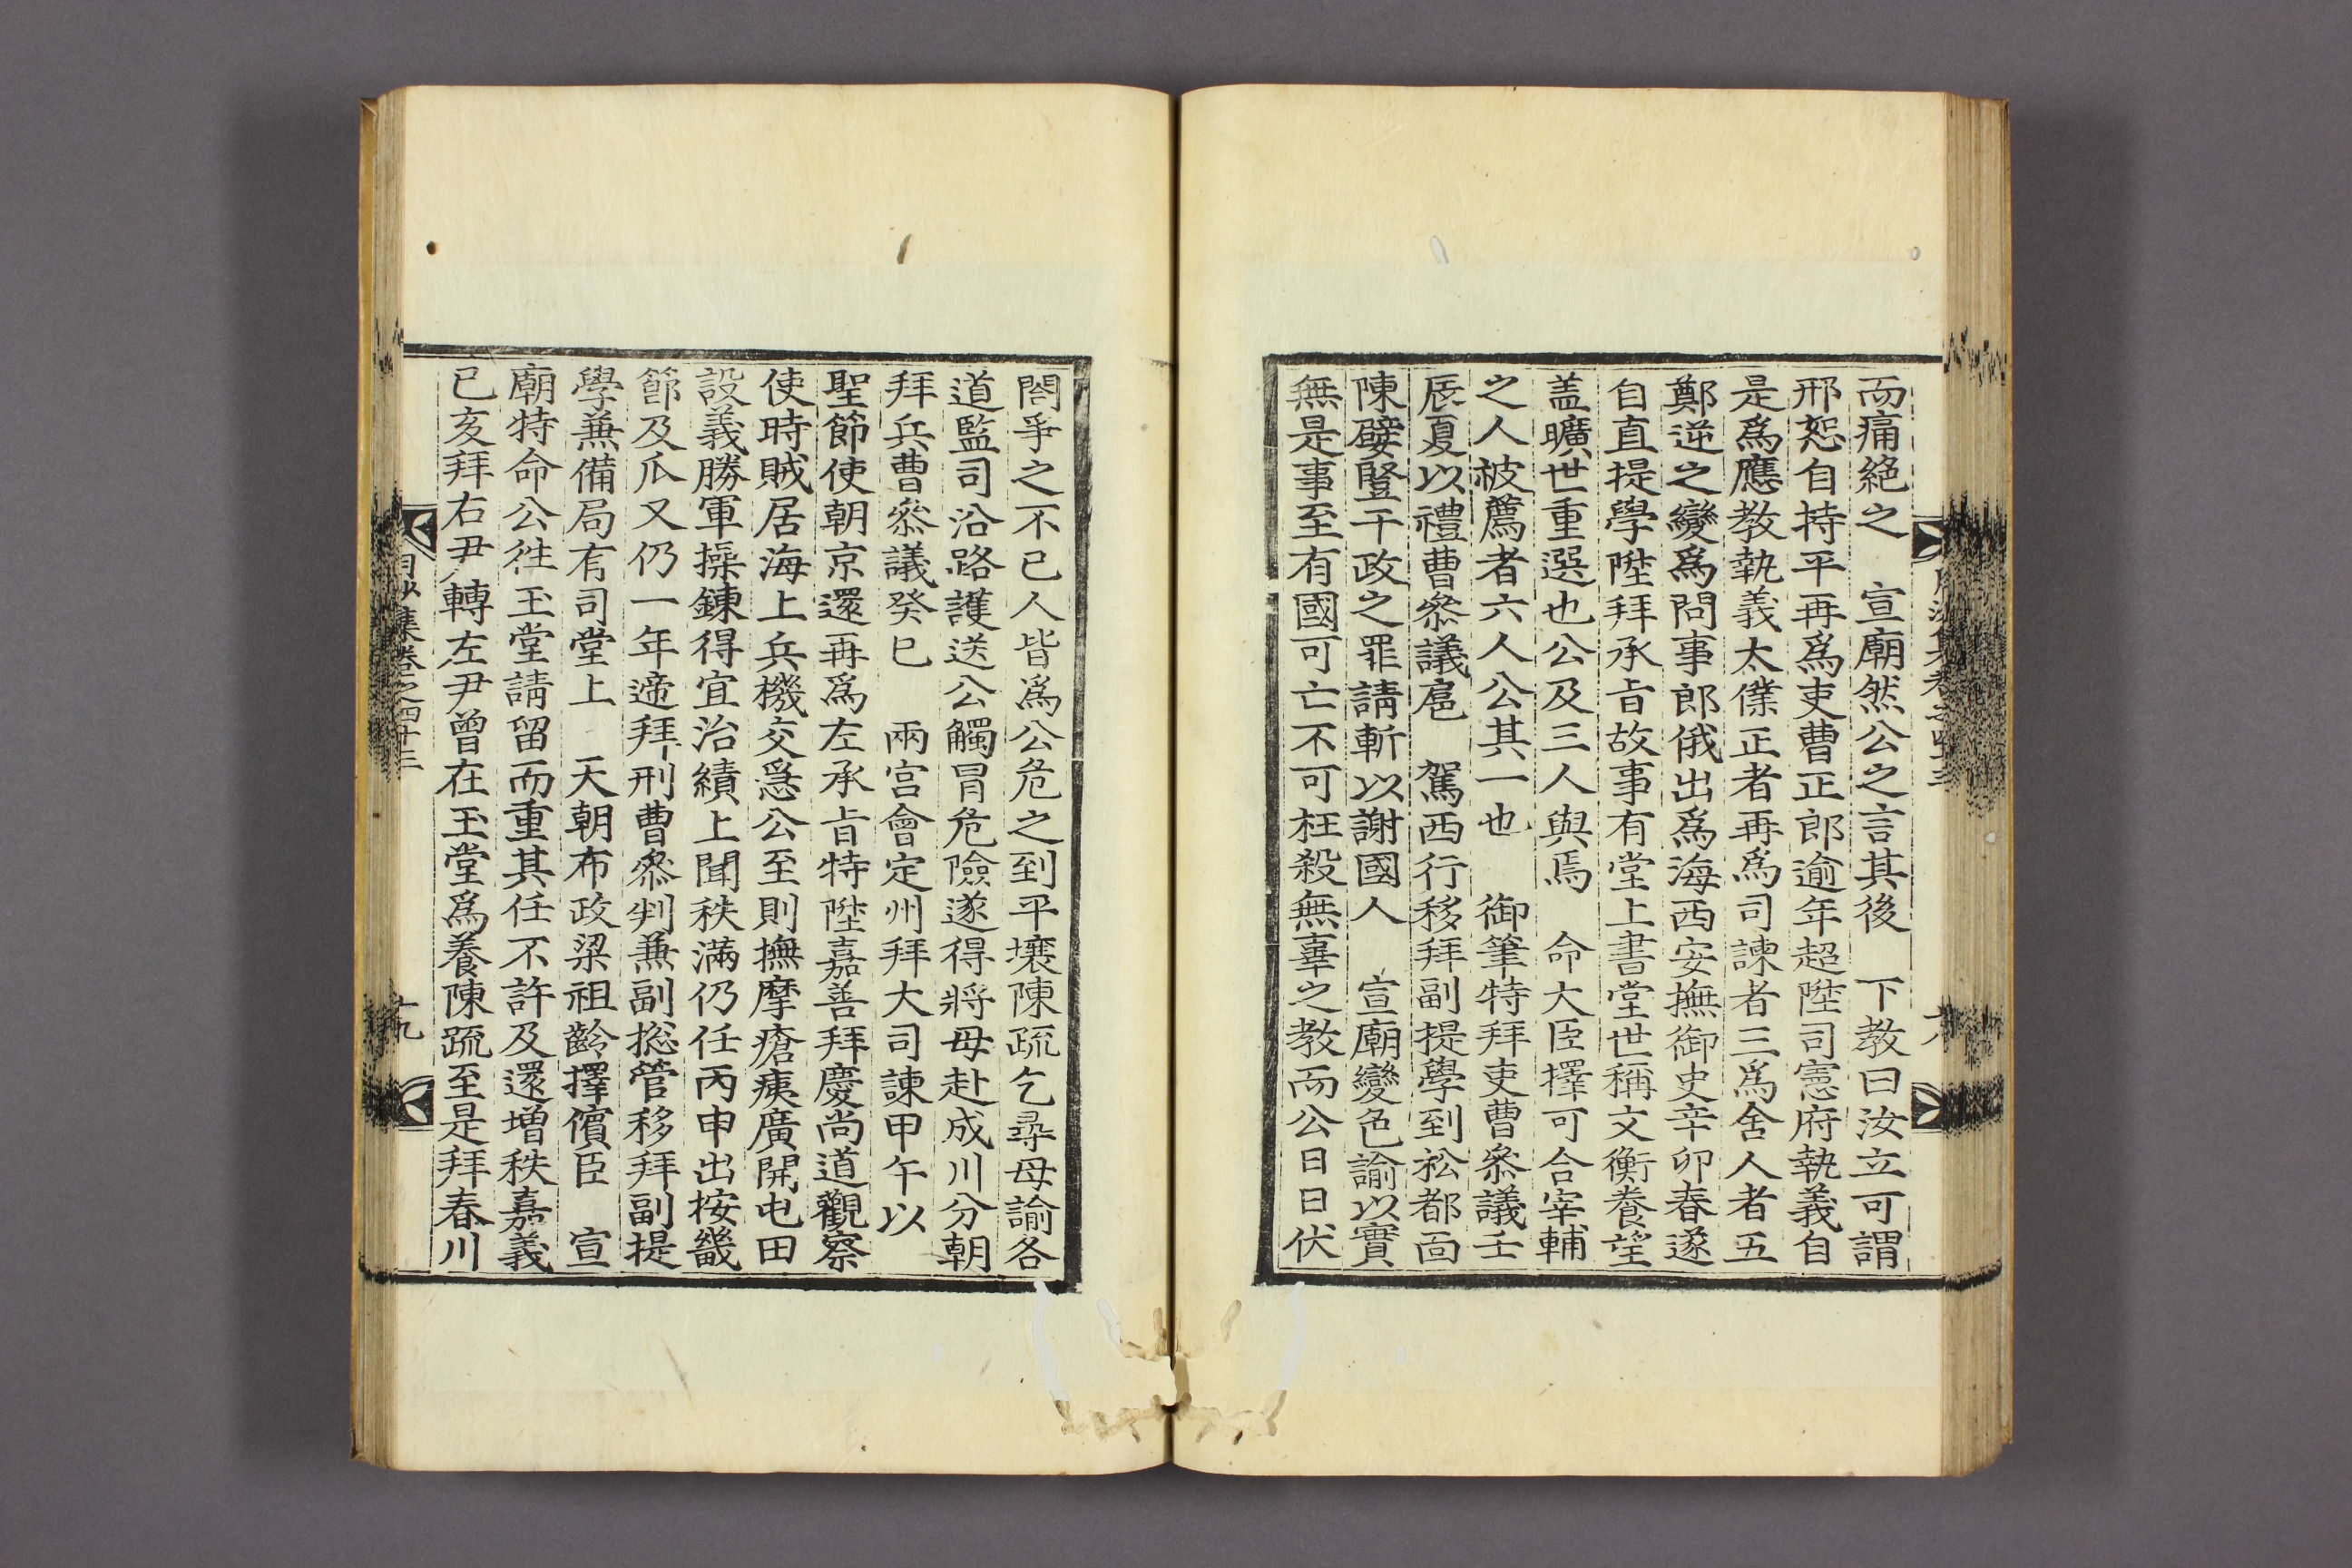 而痛絶之　宣廟然公之言其後　下教曰汝立可謂
邢恕自持平再爲吏曹正郎逾年超陞司憲府執義自
是爲應教執義太僕正者再爲司諫者三爲舍人者五
鄭逆之變爲問事郎俄出爲海西安撫御史辛卯春遂
自直提學陞拜承旨故事有堂上書堂世稱文衡養望
盖曠世重選也公及三人與焉　命大臣擇可合宰輔
之人被薦者六人公其一也　御筆特拜吏曹叅議壬
辰夏以禮曹叅議扈　駕西行移拜副提學到松都面
陳嬖竪干政之罪請斬以謝國人　宣廟變色諭以實
無是事至有國可亡不可枉殺無辜之教而公日日伏
閤爭之不已人皆爲公危之到平壤陳疏乞尋母諭各
道監司沿路護送公觸冒危險遂得將母赴成川分朝
拜兵曹叅議癸巳　兩宮會定州拜大司諫甲午以
聖節使朝京還再爲左承旨特陞嘉善拜慶尚道觀察
使時賊居海上兵機交急公至則撫摩瘡痍廣開屯田
設義勝軍操鍊得宜治績上聞秩滿仍任丙申出按畿
節及瓜又仍一年遞拜刑曹叅判兼副摠管移拜副提
學兼備局有司堂上　天朝布政梁祖齡擇儐臣　宣
廟特命公往玉堂請留而重其任不許及還增秩嘉義
己亥拜右尹轉左尹曾在玉堂爲養陳疏至是拜春川
集卷之四十三
十九